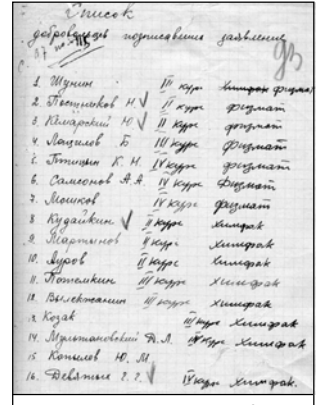 Список
добровольцев подписавших заявление
93
1. Шунин III курс физмат
2. Постников Н. √ II курс физмат
3. Комарский Ю √ II курс физмат
4. Б III курс физмат
5. Птицын К. Н. IV курс физмат
6. Самсонов А. А. IV курс Физмат
7. Мошков IV курс физмат
8. Кудайкин √ II курс Химфак
9. Мартынов II курс Химфак
10. Ауров II курс Химфак
11. Потемкин III курс Химфак
12. Вылежжанин III курс Химфак
13. Козак III курс Химфак
14. Мультановский Д. Л. IV курс Химфак
15 Копылов Ю. М
16. Девятых Г. Г. √ IV курс Химфак.